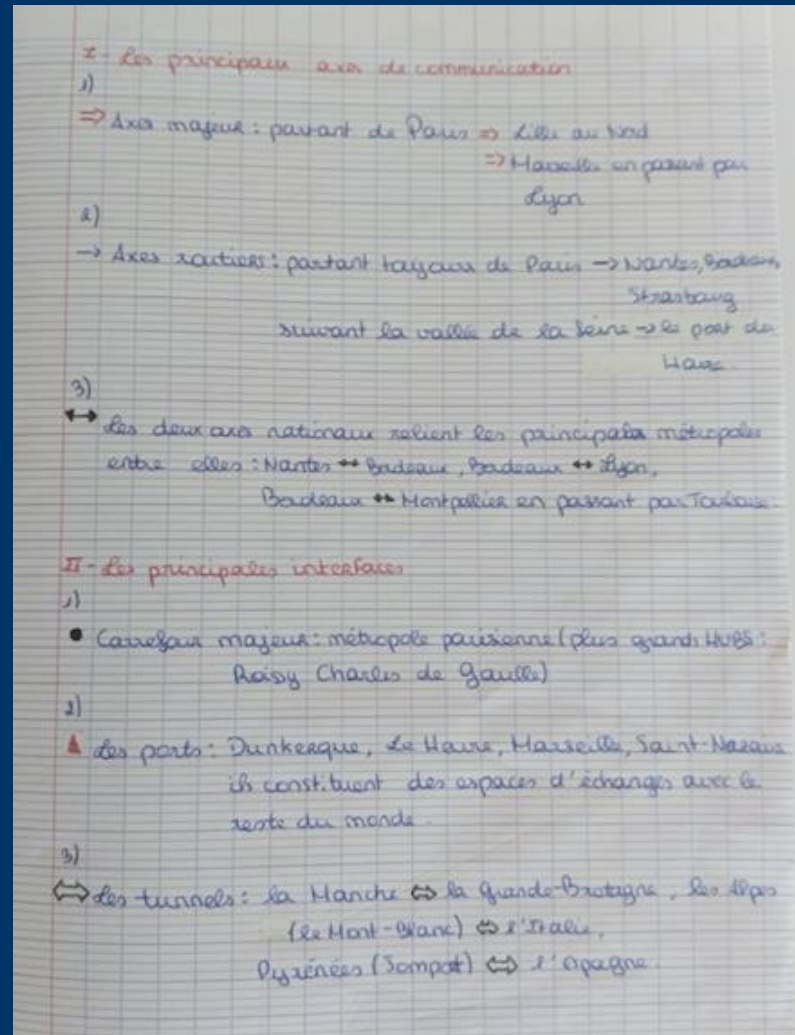 I - Les principaux axes de communication
1)
⇒ Axes majeur : partant de Paris ⇒ Lille au Nord
⇒ Marseille en passant par
Lyon
2)
→ Axes routiers : partant toujours de Paris → Nantes, Bordeaux,
Strasbourg
suivant la vallée de la Seine → le port du
Havre.
3)
↔ Les deux axes nationaux relient les principales métropoles
entre elles : Nantes ↔ Bordeaux, Bordeaux ↔ Lyon,
Bordeaux ↔ Montpellier en passant par Toulouse.
II - Les principales interfaces
1)
● Carrefour majeur : métropole parisienne (plus grands HUBS :
Roisy Charles de Gaulle)
2)
▲ Les ports : Dunkerque, Le Havre, Marseille, Saint-Nazaire
ils constituent des espaces d'échanges avec le
reste du monde.
3)
⇔ Les tunnels : la Manche ⇔ la Grande-Bretagne, les Alpes
(le Mont-Blanc) ⇔ l'Italie,
Pyrénées (Sompot) ⇔ l'Espagne.